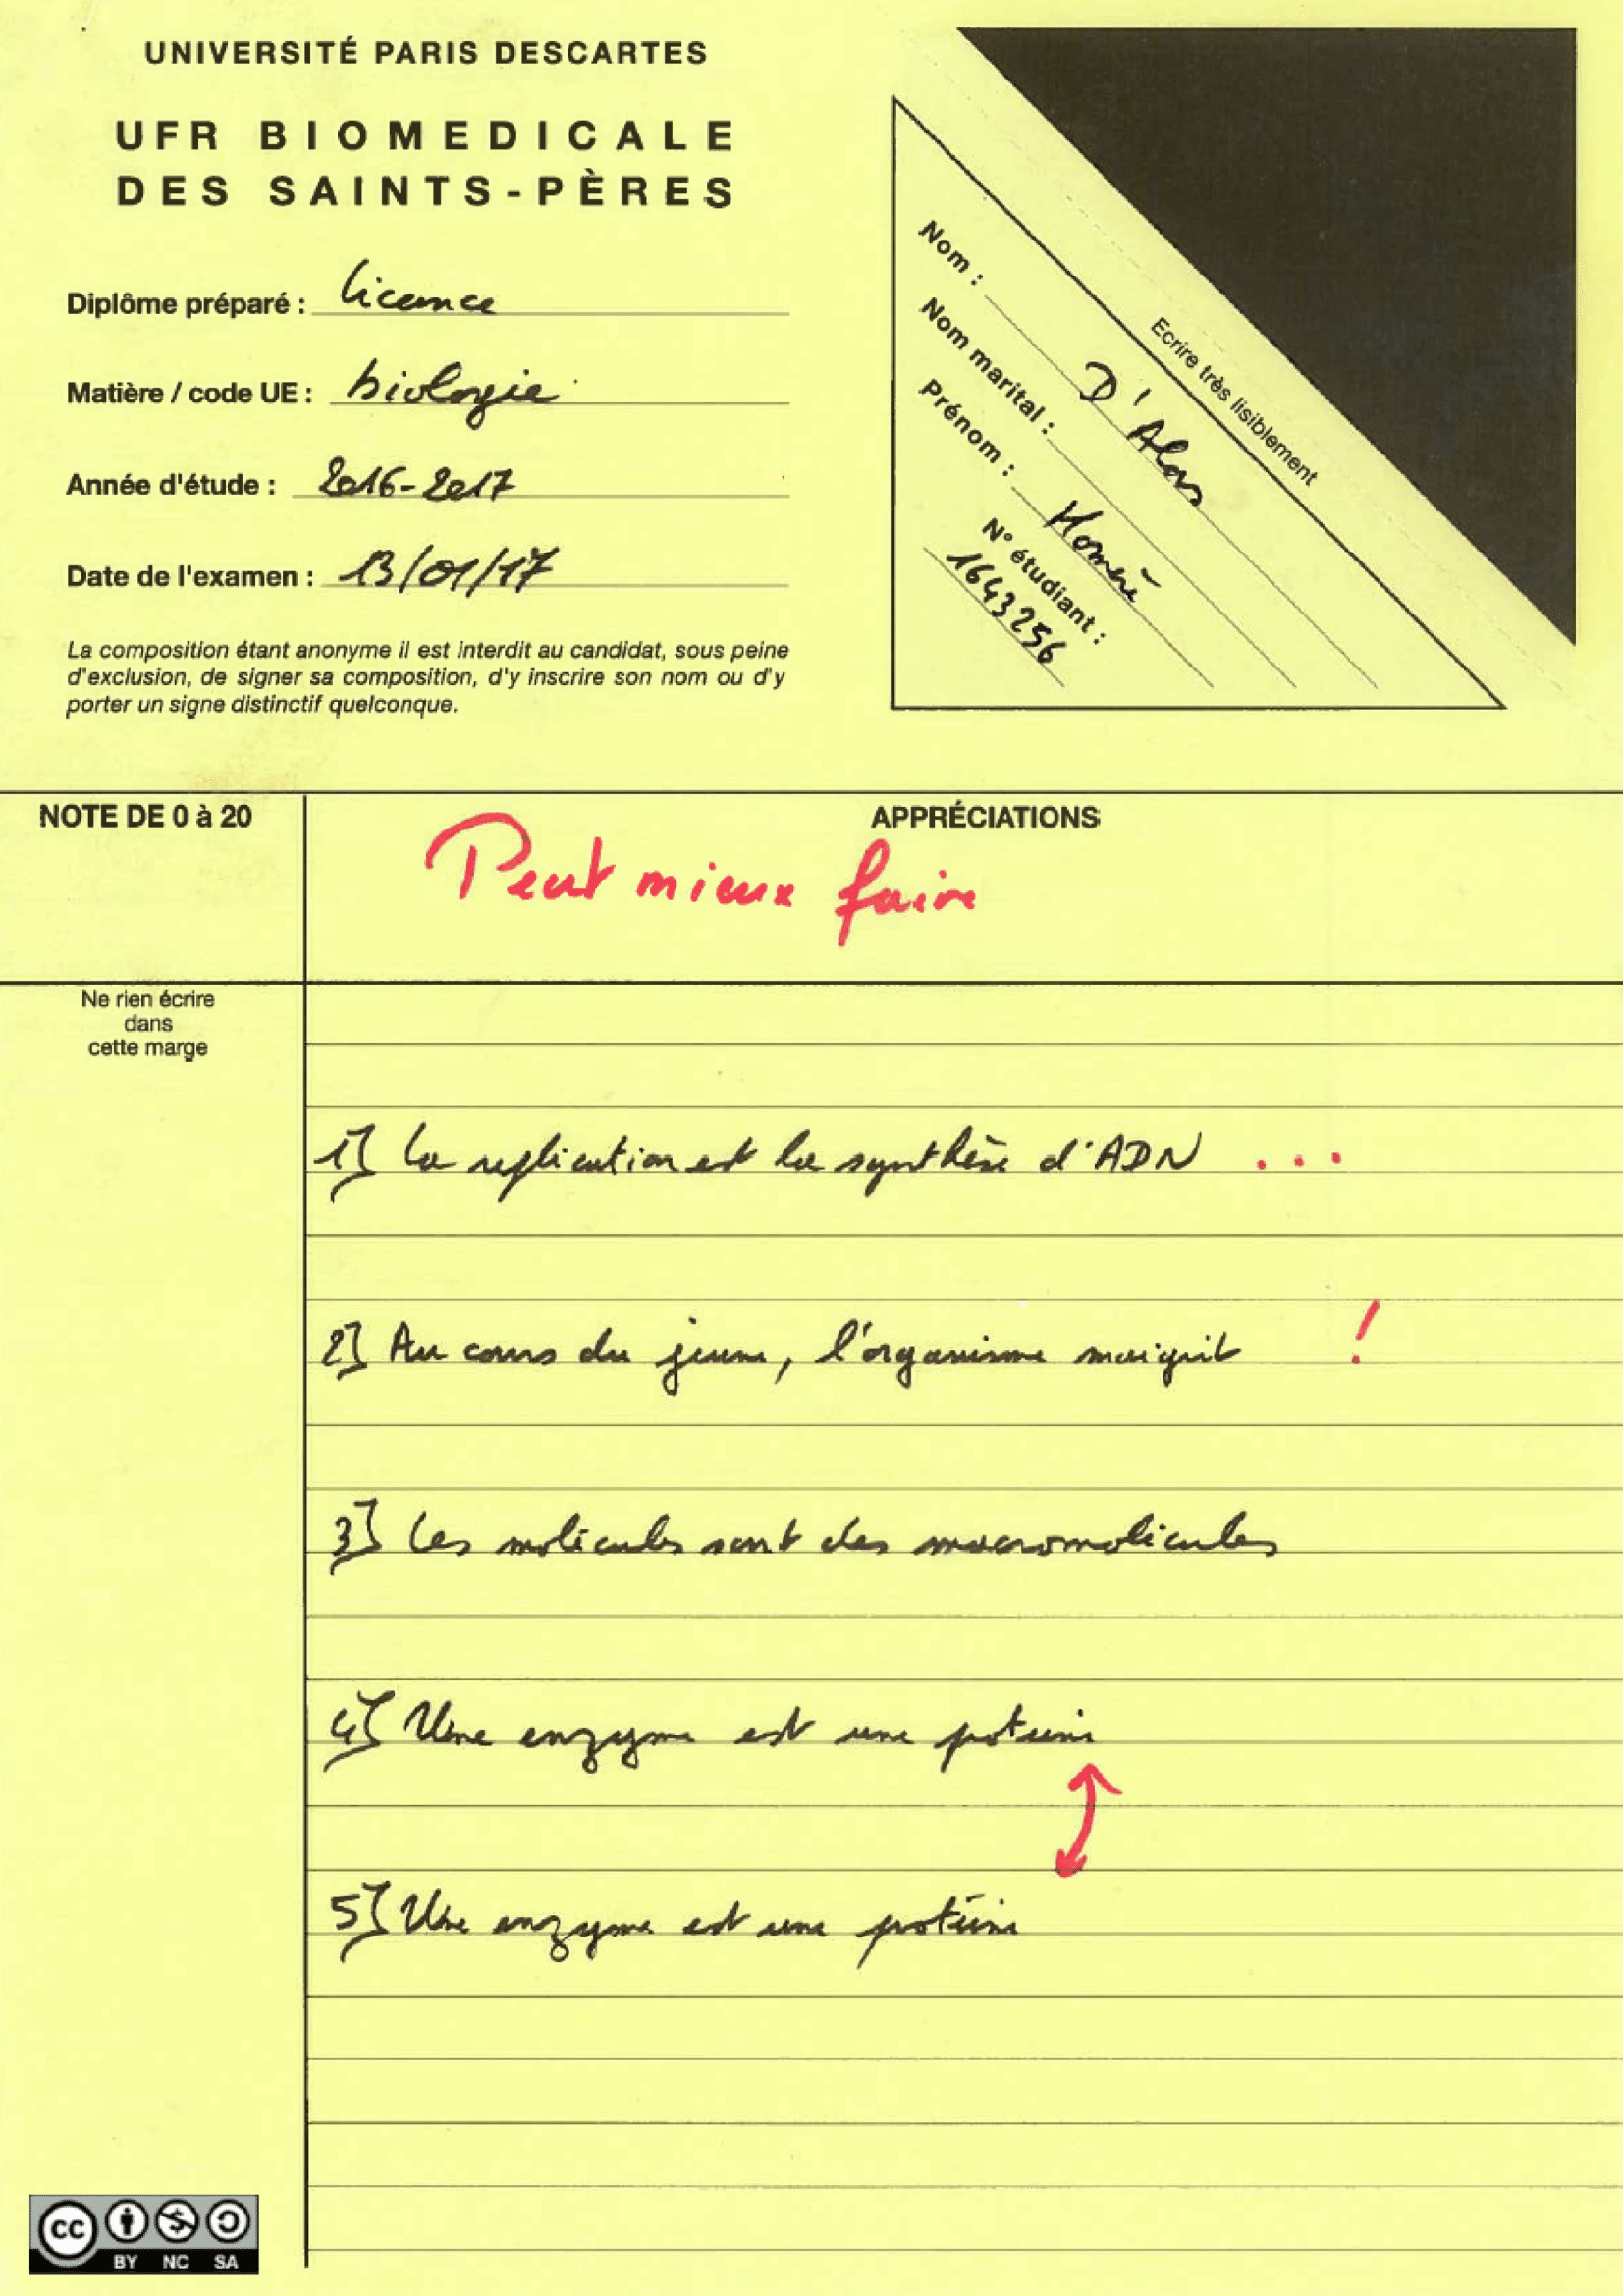 UNIVERSITÉ PARIS DESCARTES
UFR BIOMEDICALE
DES SAINTS-PÈRES
Diplôme préparé : Licence
Matière / code UE : biologie
Année d'étude : 2016-2017
Date de l'examen : 13/01/17
La composition étant anonyme il est interdit au candidat, sous peine
d'exclusion, de signer sa composition, d'y inscrire son nom ou d'y
porter un signe distinctif quelconque.
Ecrire très lisiblement
Nom : D'Alors
Nom marital :
Prénom : Homère
N° étudiant :
1643256
NOTE DE 0 à 20
APPRÉCIATIONS
Peut mieux faire
Ne rien écrire
dans
cette marge
1] La replication est la synthèse d'ADN ...
2] Au cours du jeune, l'organisme maigrit !
3] Les molécules sont des macromolécules
4] Une enzyme est une poteine
5] Une enzyme est une protéine
cc BY NC SA